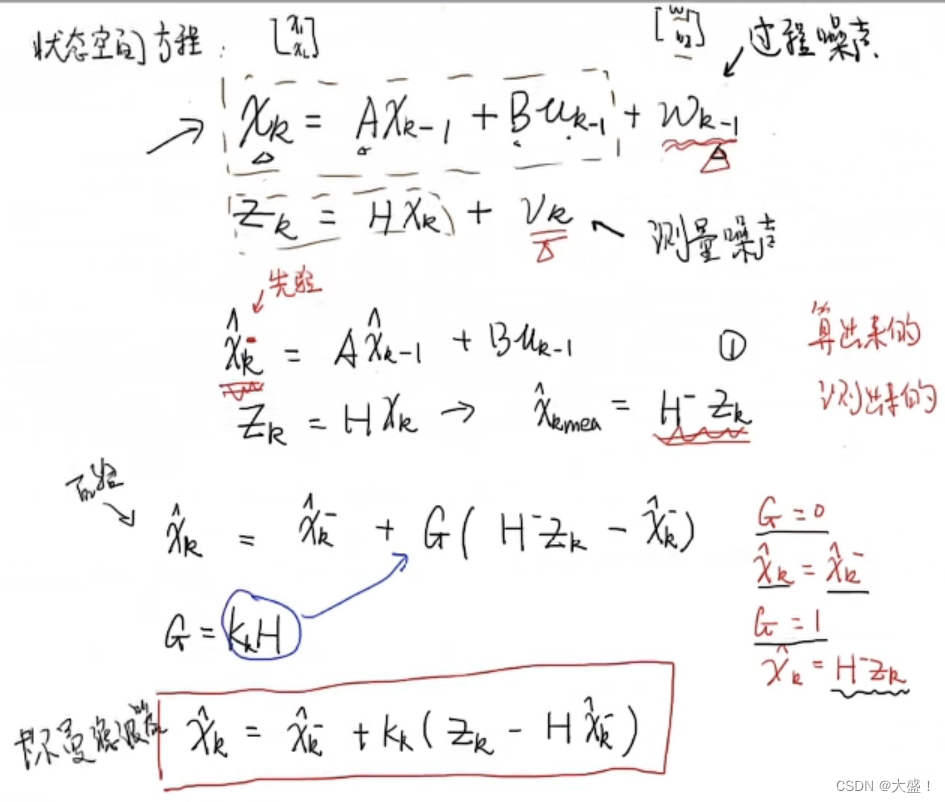 状态空间方程: [x₁ x₂] [w₁ w₂] 过程噪声.
X_k = AX_{k-1} + Bu_{k-1} + w_{k-1}
Z_k = HX_k + v_k 测量噪声
先验
x̂_k⁻ = Ax̂_{k-1} + Bu_{k-1} ① 算出来的
Z_k = HX_k → x̂_{kmea} = H⁻Z_k 测出来的
后验
x̂_k = x̂_k⁻ + G(H⁻Z_k - x̂_k⁻)
G=0
x̂_k = x̂_k⁻
G = k_kH
G=1
x̂_k = H⁻Z_k
卡尔曼滤波器
x̂_k = x̂_k⁻ + k_k(Z_k - Hx̂_k⁻)
CSDN @大盛！